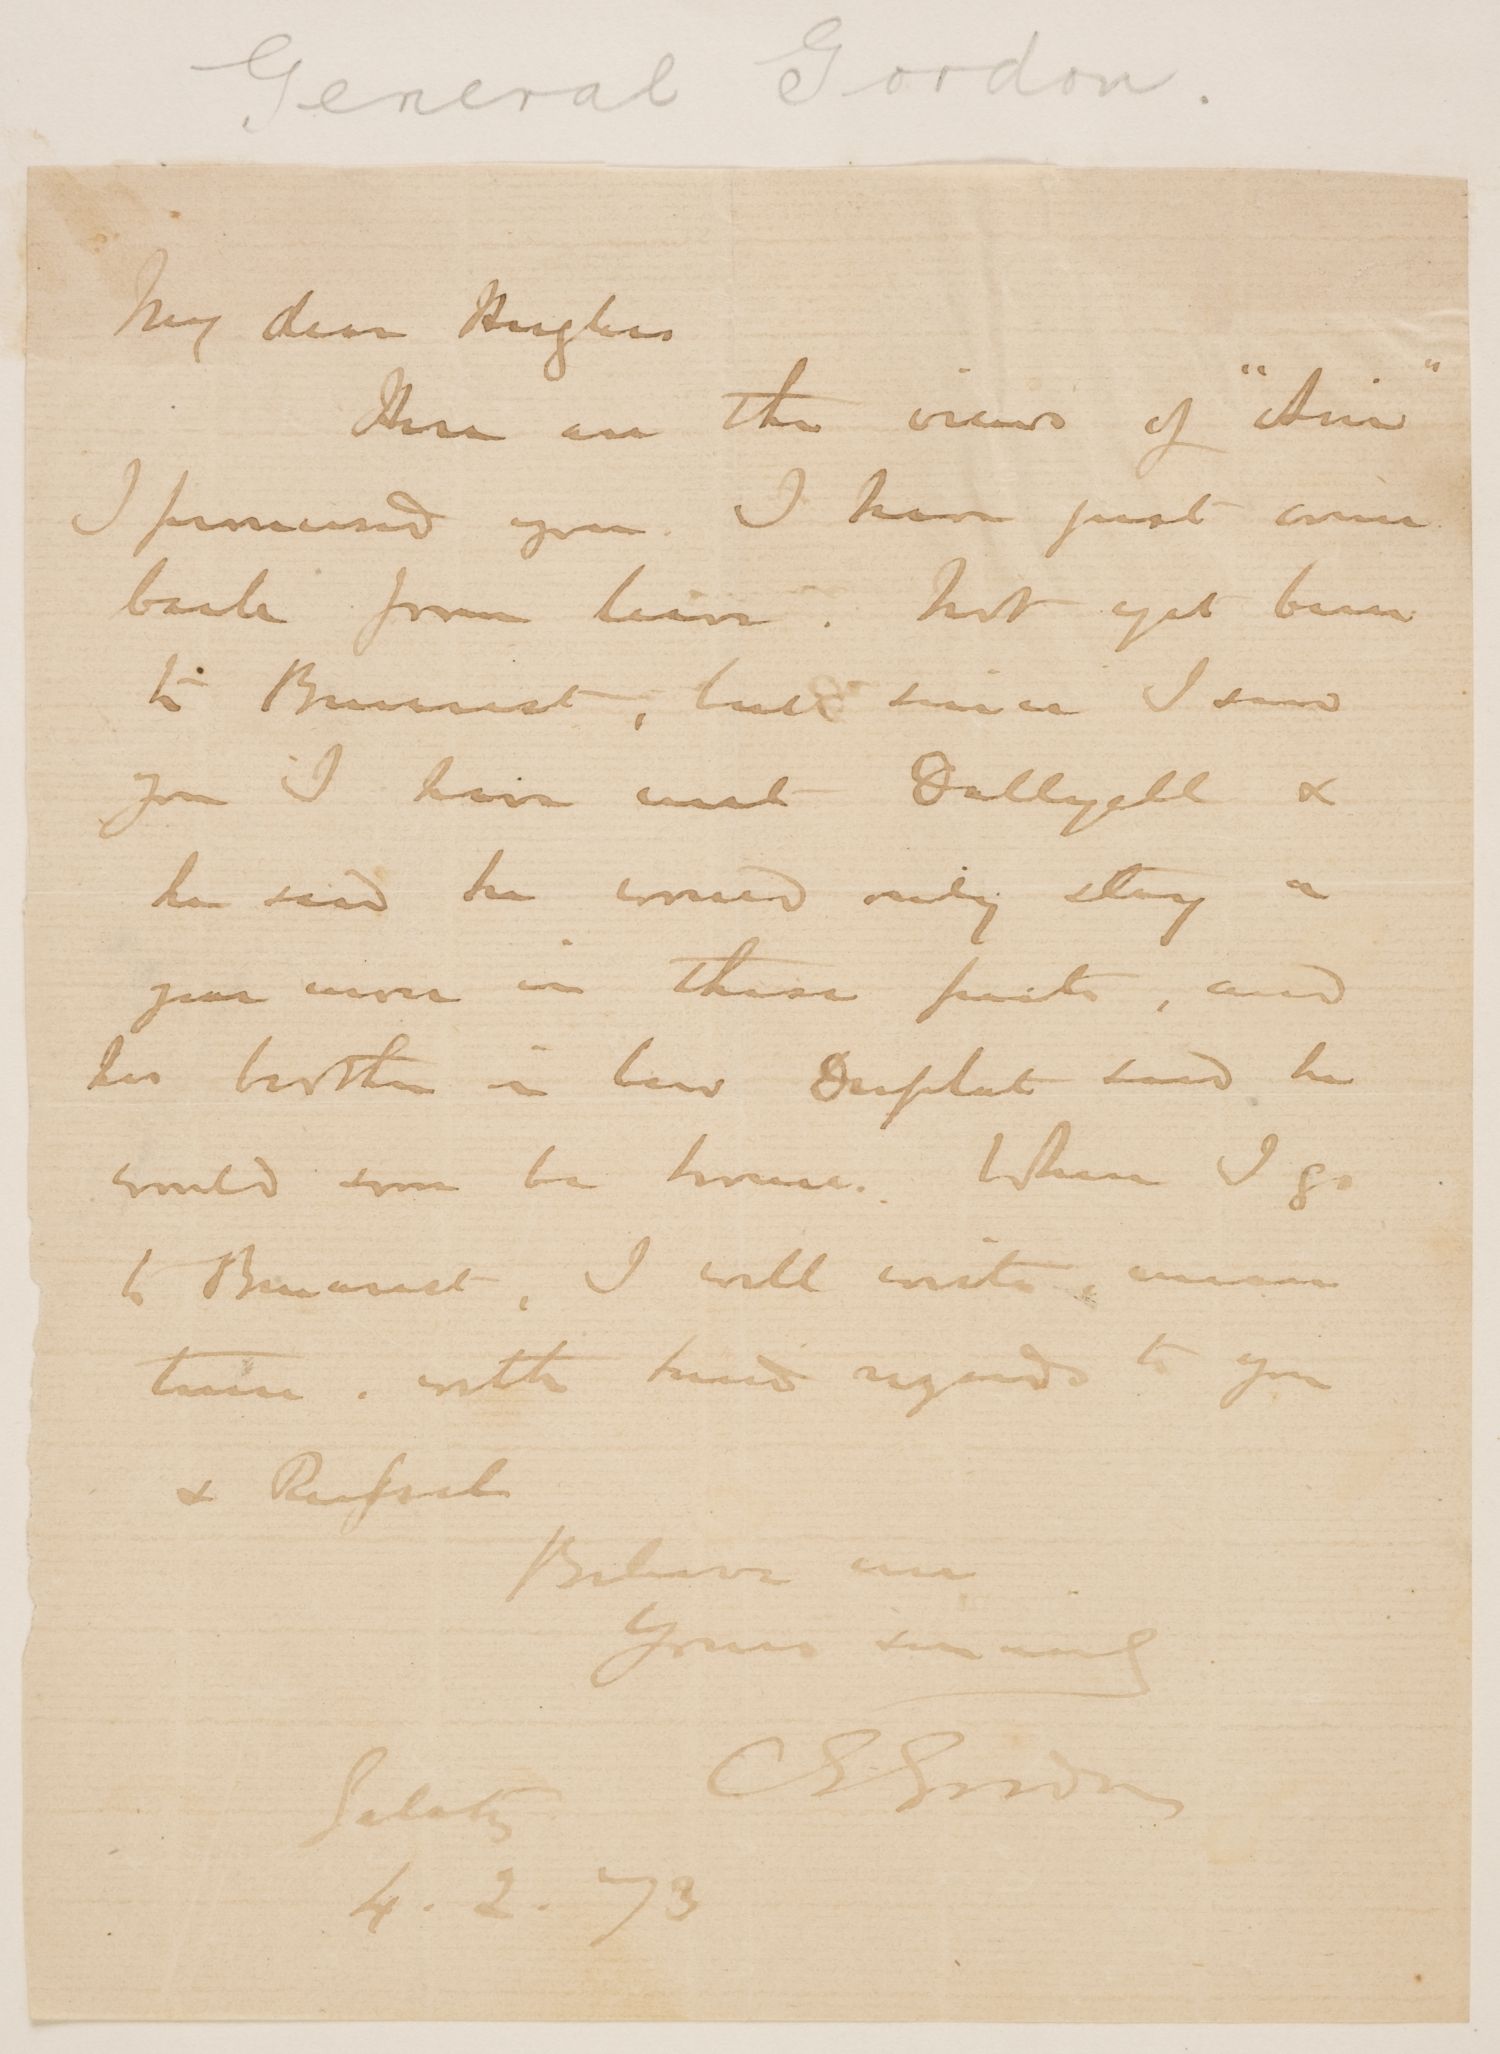 General Gordon.
My dear Hughes
Here are the views of "Ani"
I promised you. I have just come
back from leave. Not yet been
to Bucarest, but since I saw
you I have met Dallyell &
he said he would only stay a
year more in these parts, and
his brother in law Duplat said he
would soon be home. When I go
to Bucarest, I will write, mean
time. with kind regards to you
&
Believe me
Yours sincerely
CEGordon
Galatz
4. 2. 73